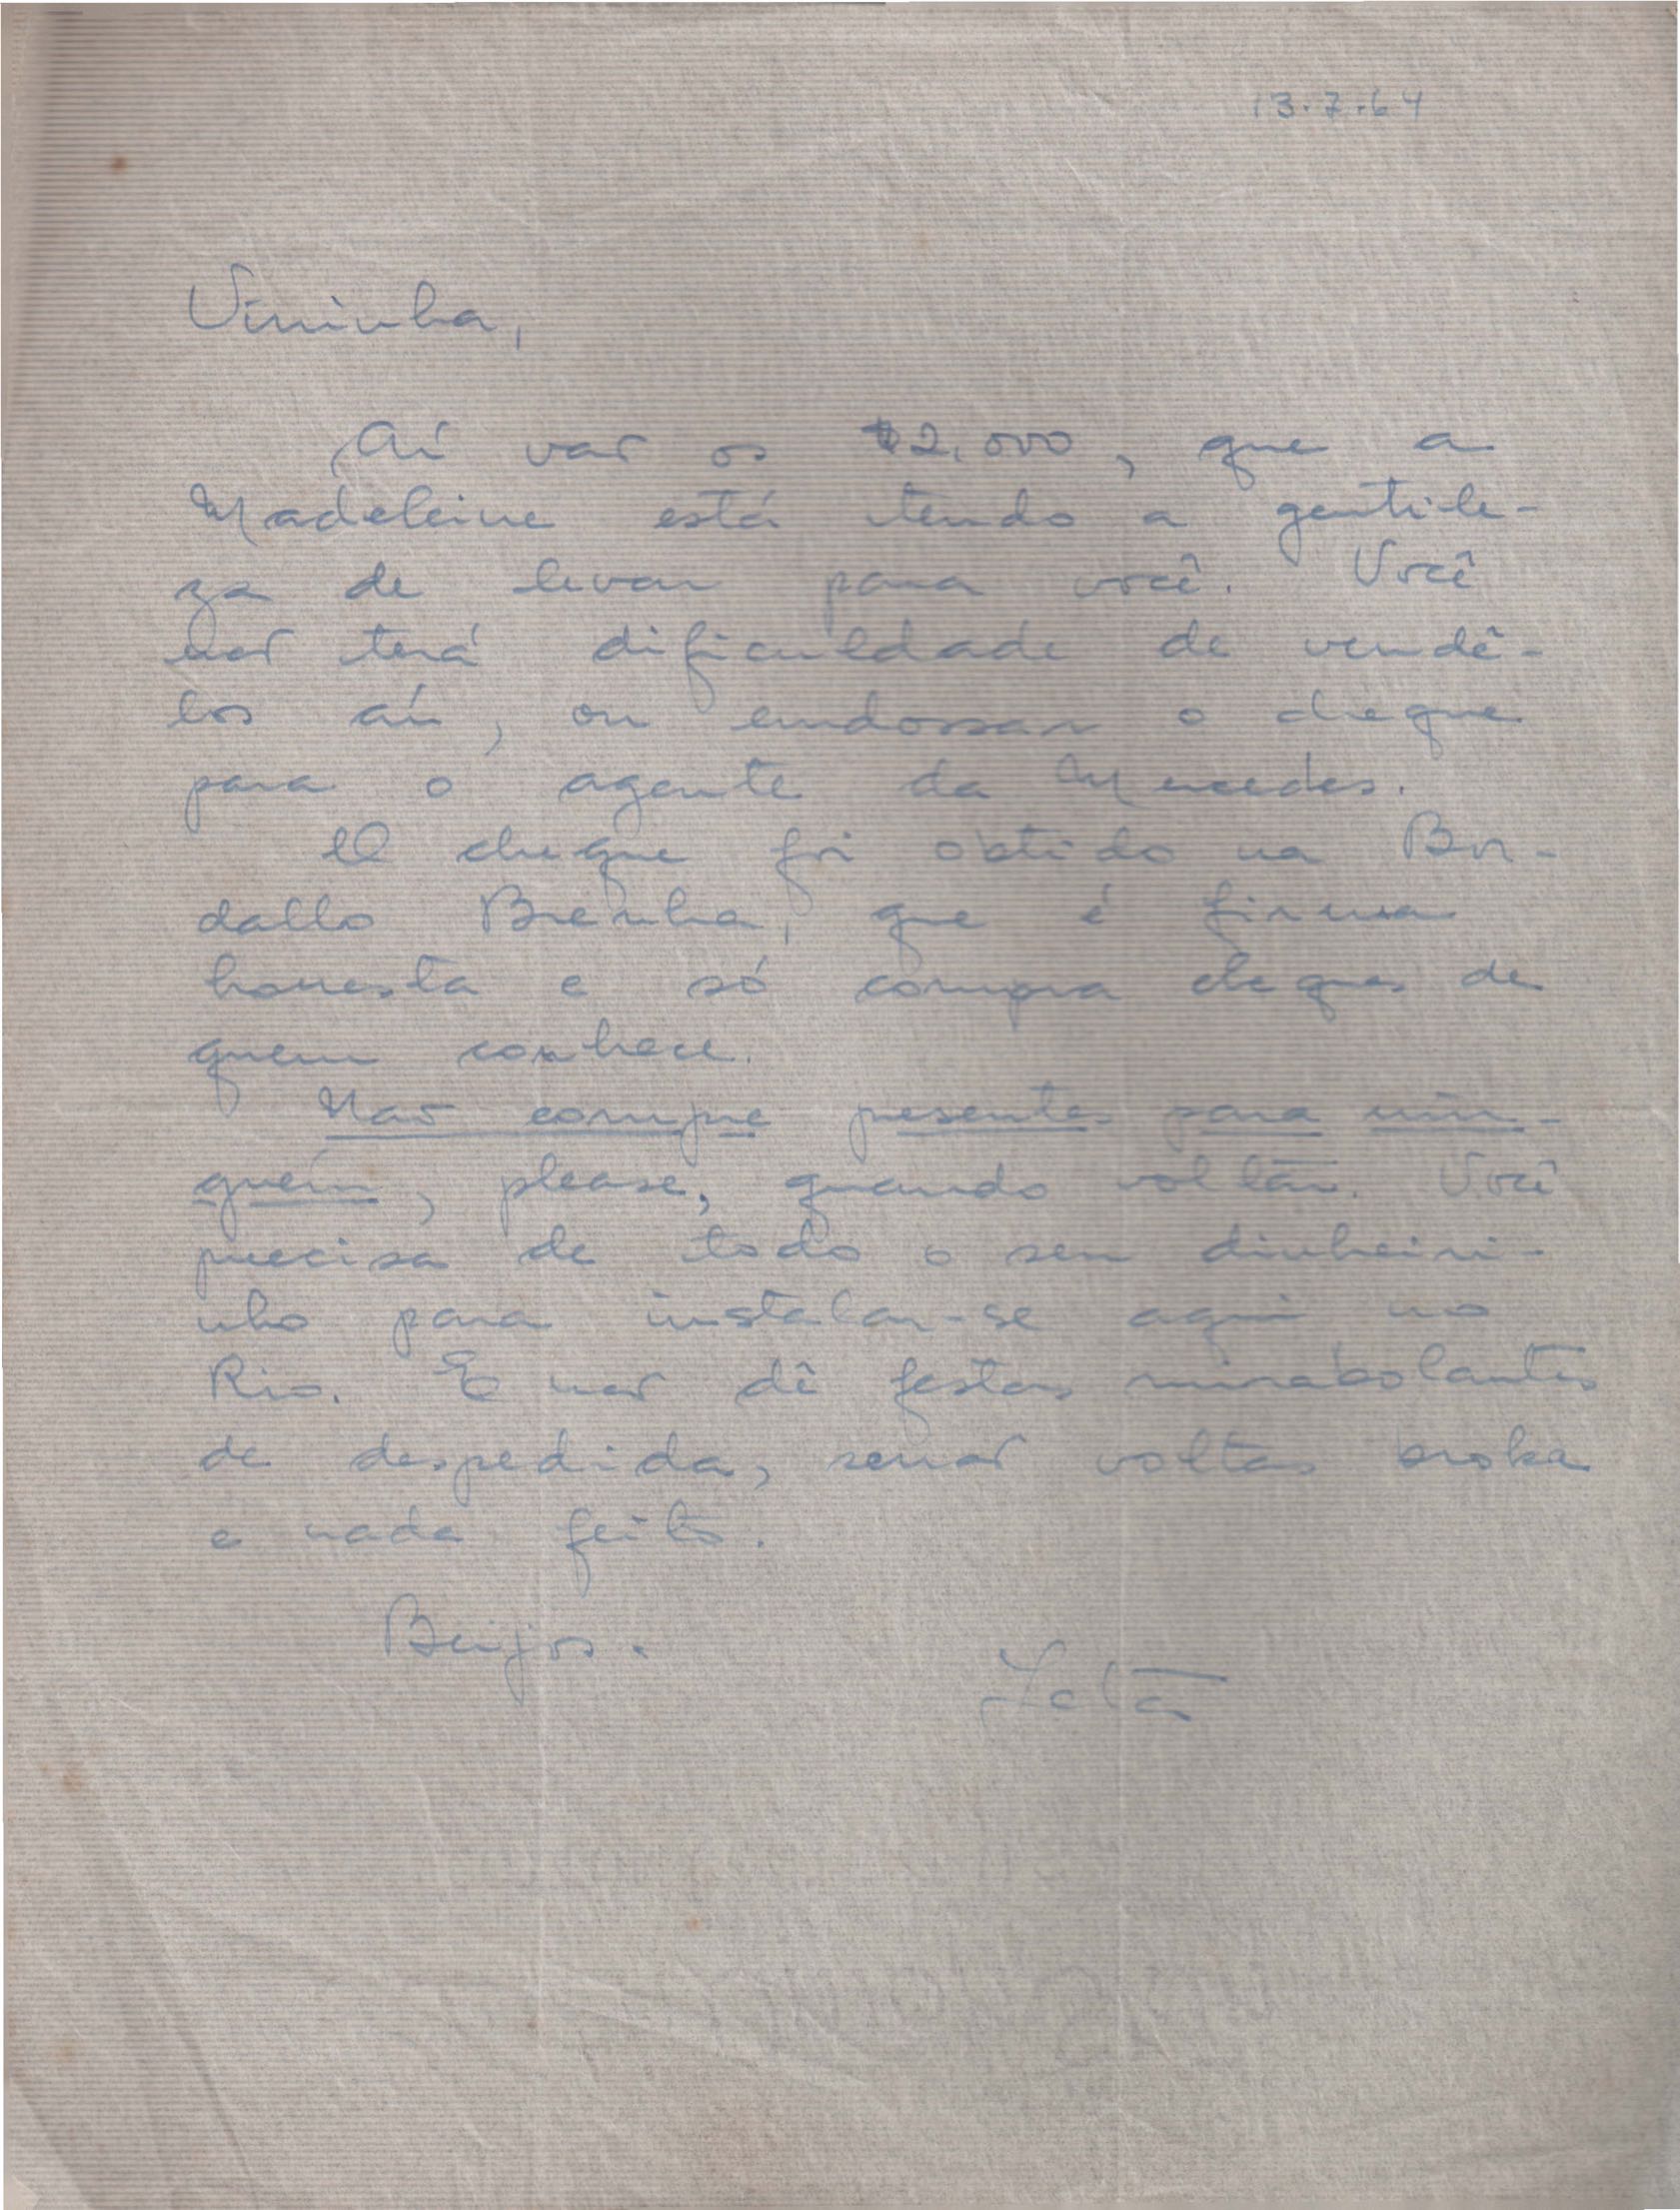 13.7.64
Vininha,
Aí vão os $2.000, que a
Madeleine está tendo a gentile-
za de levar para você. Você
não terá dificuldade de vendê-
los aí, ou endossar o cheque
para o agente da Mercedes.
O cheque foi obtido na Bor-
dallo Brenha, que é firma
honesta e só compra cheques de
quem conhece.
Não compre presentes para nin-
guém, please, quando voltar. Você
precisa de todo o seu dinheiri-
nho para instalar-se aqui no
Rio. E não dê festas mirabolantes
de despedida, senão voltas broka
e nada feito.
Beijos.